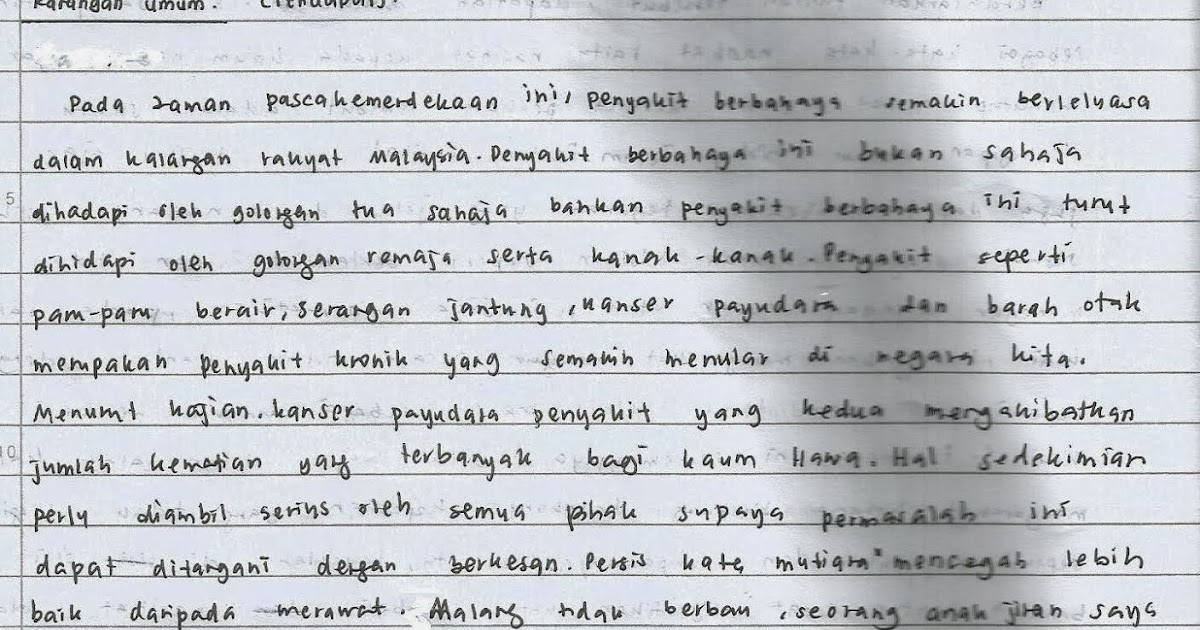 Karangan umum.
Pada zaman pascakemerdekaan ini, penyakit berbahaya semakin berleluasa
dalam kalangan rakyat Malaysia. Penyakit berbahaya ini bukan sahaja
5 dihadapi oleh golongan tua sahaja bahkan penyakit berbahaya ini turut
dihidapi oleh golongan remaja serta kanak-kanak. Penyakit seperti
pam-pam berair, serangan jantung, kanser payudara dan barah otak
merupakan penyakit kronik yang semakin menular di negara kita.
Menurut kajian, kanser payudara penyakit yang kedua mengakibatkan
10 jumlah kematian yang terbanyak bagi kaum Hawa. Hal sedekimian
perlu diambil serius oleh semua pihak supaya permasalah ini
dapat ditangani dengan berkesan. Persis kata mutiara "mencegah lebih
baik daripada merawat. Malang tidak berbau, seorang anak jiran saya